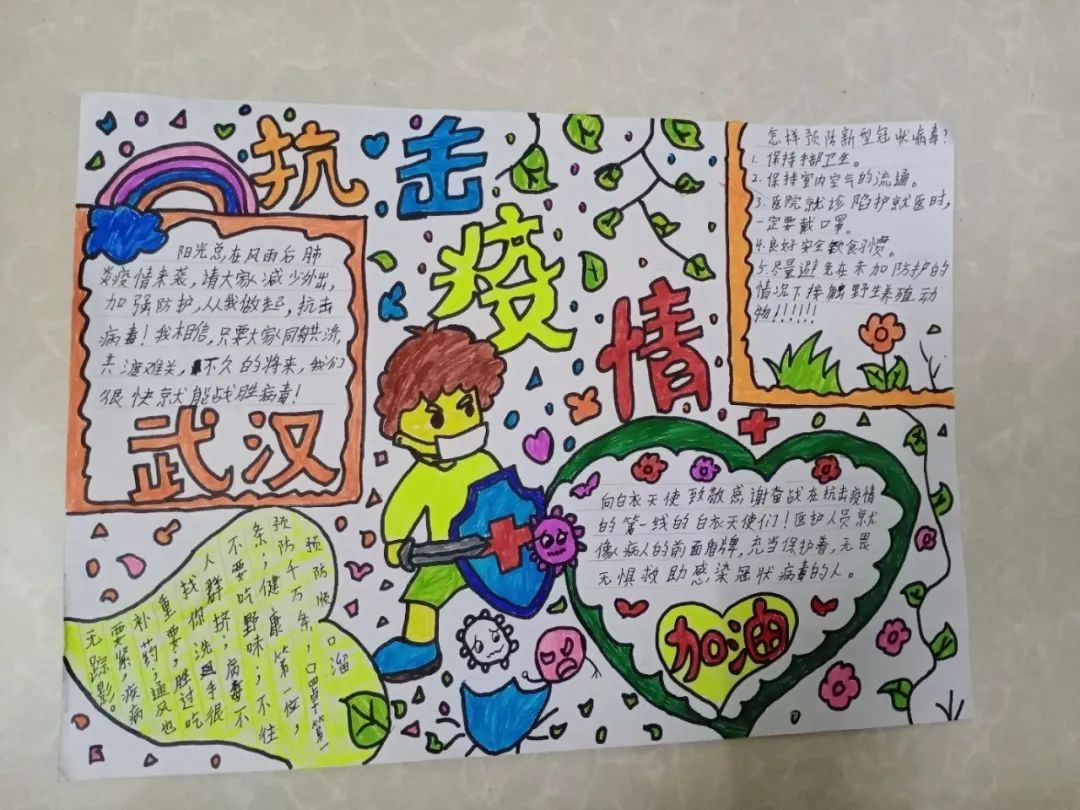 抗击疫情
阳光总在风雨后肺
炎疫情来袭，请大家减少外出，
加强防护，从我做起，抗击
病毒！我相信，只要大家同舟共济，
共渡难关，不久的将来，我们
很快就能战胜病毒！
武汉
怎样预防新型冠状病毒？
1. 保持手部卫生。
2. 保持室内空气的流通。
3. 医院就诊陪护就医时，
一定要戴口罩。
4. 良好安全飲食习惯。
5. 尽量避免在未加防护的
情况下接触野生养殖动
物！！！！！！
向白衣天使致敬感谢奋战在抗击疫情
的第一线的白衣天使们！医护人员就
像病人的前面盾牌，充当保护着，无畏
无惧救助感染冠状病毒的人。
加油
预防顺口溜
预防千万条，口罩第一
条，要健康第一位，
不要吃野味；不住
人群挤，病毒不
找你，洗手很
重要，胜过吃
补药，通风也
要紧，疾病
无踪影。